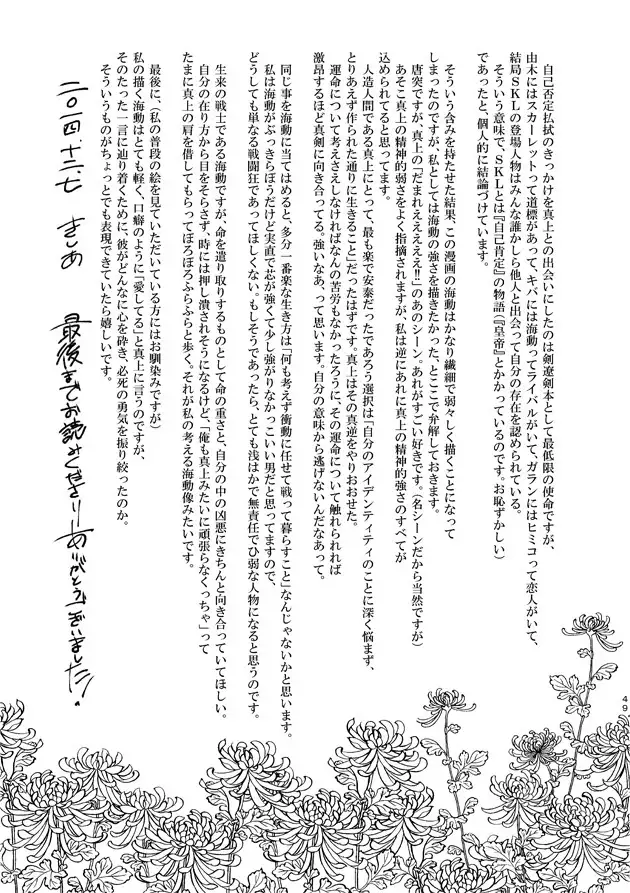 自己否定払拭のきっかけを真上との出会いにしたのは剣遼剣本として最低限の使命ですが、
由木にはスカーレットって道標があって、キバには海動ってライバルがいて、ガランにはヒミコって恋人がいて、
結局SKLの登場人物はみんな誰かしら他人と出会って自分の存在を認められている。
そういう意味で、SKLとは『自己肯定』の物語(『皇帝』とかかっているのです。お恥ずかしい)
であったと、個人的に結論づけています。
そういう含みを持たせた結果、この漫画の海動はかなり繊細で弱々しく描くことになって
しまったのですが、私としては海動の強さを描きたかった、とここで弁解しておきます。
唐突ですが、真上の「だまれえええええ!!」のあのシーン、あれがすごい好きです。(名シーンだから当然ですが)
あそこ真上の精神的弱さをよく指摘されますが、私は逆にあれに真上の精神的強さのすべてが
込められてると思ってます。
人造人間である真上にとって、最も楽で安泰だったであろう選択は「自分のアイデンティティのことに深く悩まず、
とりあえず作られた通りに生きること」だったはずです。真上はその真逆をやりおおせた。
運命について考えさえしなければなんの苦労もなかったろうに、その運命について触れられれば
激昂するほど真剣に向き合ってる。強いなあ、って思います。自分の意味から逃げないんだなあって。
同じ事を海動に当てはめると、多分一番楽な生き方は「何も考えず衝動に任せて戦って暮らすこと」なんじゃないかと思います。
私は海動がぶっきらぼうだけど実直で芯が強くて少し強がりなかっこいい男だと思ってますので、
どうしても単なる戦闘狂であってほしくない。もしそうであったら、とても浅はかで無責任でひ弱な人物になると思うのです。
生来の戦士である海動ですが、命を遣り取りするものとして命の重さと、自分の中の凶悪にきちんと向き合っていてほしい。
自分の在り方から目をそらさず、時には押し潰されそうになるけど、「俺も真上みたいに頑張らなくっちゃ」って
たまに真上の肩を借してもらってぼろぼろふらふらと歩く。それが私の考える海動像みたいです。
最後に、(私の普段の絵を見ていただいている方にはお馴染みですが)
私の描く海動はとても軽く、口癖のように「愛してる」と真上に言うのですが、
そのたった一言に辿り着くために、彼がどんなに心を砕き、必死の勇気を振り絞ったのか。
そういうものがちょっとでも表現できていたら嬉しいです。
二〇一四・十二・七 きしめ
最後までお読みくださりありがとうございました!
49